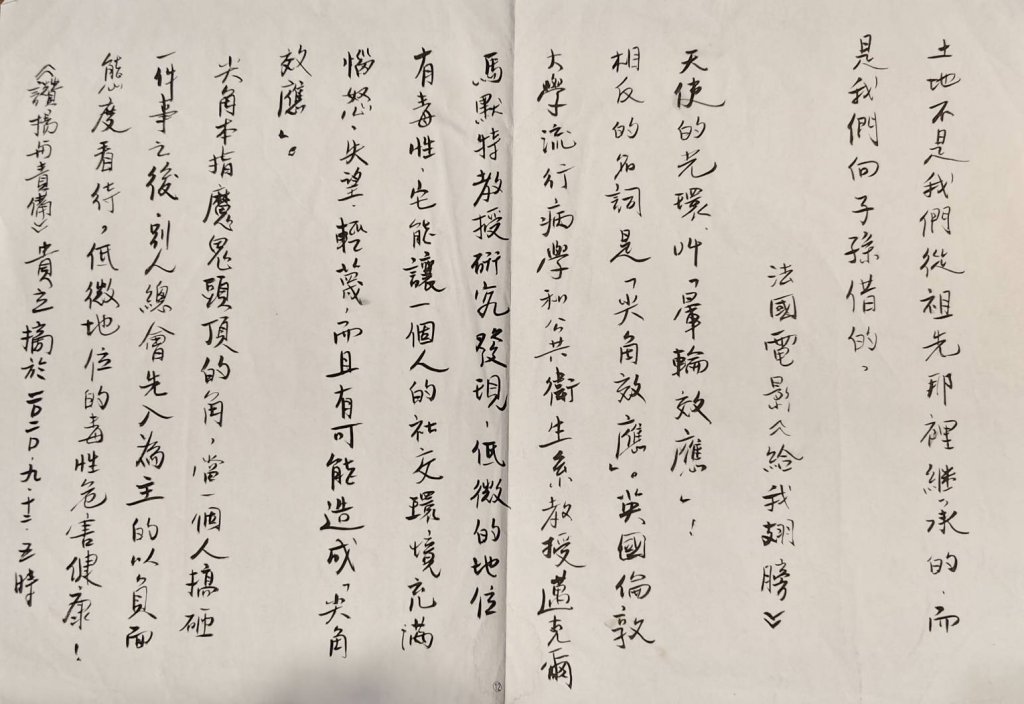 土地不是我們從祖先那裡繼承的，而
是我們向子孫借的。
法國電影《給我翅膀》
天使的光環，叫「暈輪效應」！
相反的名詞是「尖角效應」。英國倫敦
大學流行病學和公共衛生系教授邁克爾
馬默特教授研究發現，低微的地位
有毒性，它能讓一個人的社交環境充滿
惱怒、失望、輕蔑，而且有可能造成「尖角
效應」。
尖角本指魔鬼頭頂的角，當一個人搞砸
一件事之後，別人總會先入為主的以負面
態度看待，低微地位的毒性危害健康！
《讚揚與責備》貴立摘於二〇二〇．九．十二．五時
12